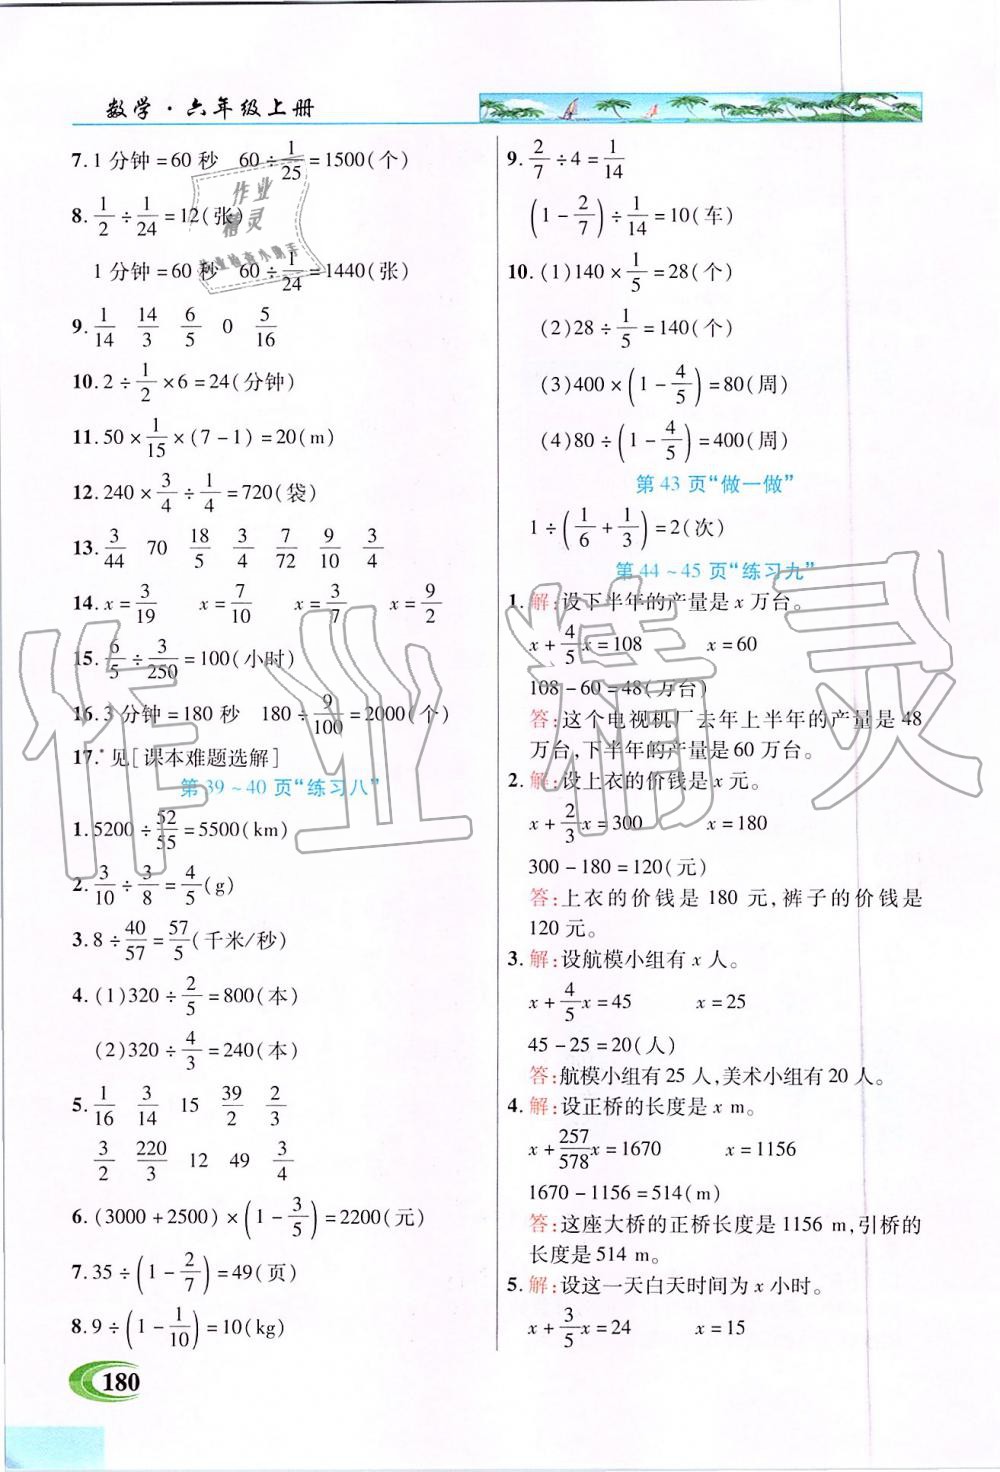 数学·六年级上册
7. 1分钟=60秒 60÷1/25=1500(个)
8. 1/2÷1/24=12(张)
1分钟=60秒 60÷1/24=1440(张)
9. 1/14 14/3 6/5 0 5/16
10. 2÷1/2×6=24(分钟)
11. 50×1/15×(7-1)=20(m)
12. 240×3/4÷1/4=720(袋)
13. 3/44 70 18/5 3/4 7/72 9/10 3/4
14. x=3/19 x=7/10 x=3/7 x=9/2
15. 6/5÷3/250=100(小时)
16. 3分钟=180秒 180÷9/100=2000(个)
17.* 见[课本难题选解]
第39~40页“练习八”
1. 5200÷52/55=5500(km)
2. 3/10÷3/8=4/5(g)
3. 8÷40/57=57/5(千米/秒)
4. (1)320÷2/5=800(本)
(2)320÷4/3=240(本)
5. 1/16 3/14 15 39/2 2/3
3/2 220/3 12 49 3/4
6. (3000+2500)×(1-3/5)=2200(元)
7. 35÷(1-2/7)=49(页)
8. 9÷(1-1/10)=10(kg)
180
9. 2/7÷4=1/14
(1-2/7)÷1/14=10(车)
10. (1)140×1/5=28(个)
(2)28÷1/5=140(个)
(3)400×(1-4/5)=80(周)
(4)80÷(1-4/5)=400(周)
第43页“做一做”
1÷(1/6+1/3)=2(次)
第44~45页“练习九”
1. 解:设下半年的产量是x万台。
x+4/5x=108 x=60
108-60=48(万台)
答:这个电视机厂去年上半年的产量是48
万台,下半年的产量是60万台。
2. 解:设上衣的价钱是x元。
x+2/3x=300 x=180
300-180=120(元)
答:上衣的价钱是180元,裤子的价钱是
120元。
3. 解:设航模小组有x人。
x+4/5x=45 x=25
45-25=20(人)
答:航模小组有25人,美术小组有20人。
4. 解:设正桥的长度是x m。
x+257/578x=1670 x=1156
1670-1156=514(m)
答:这座大桥的正桥长度是1156 m,引桥的
长度是514 m。
5. 解:设这一天白天时间为x小时。
x+3/5x=24 x=15
作业精灵
作业
精灵